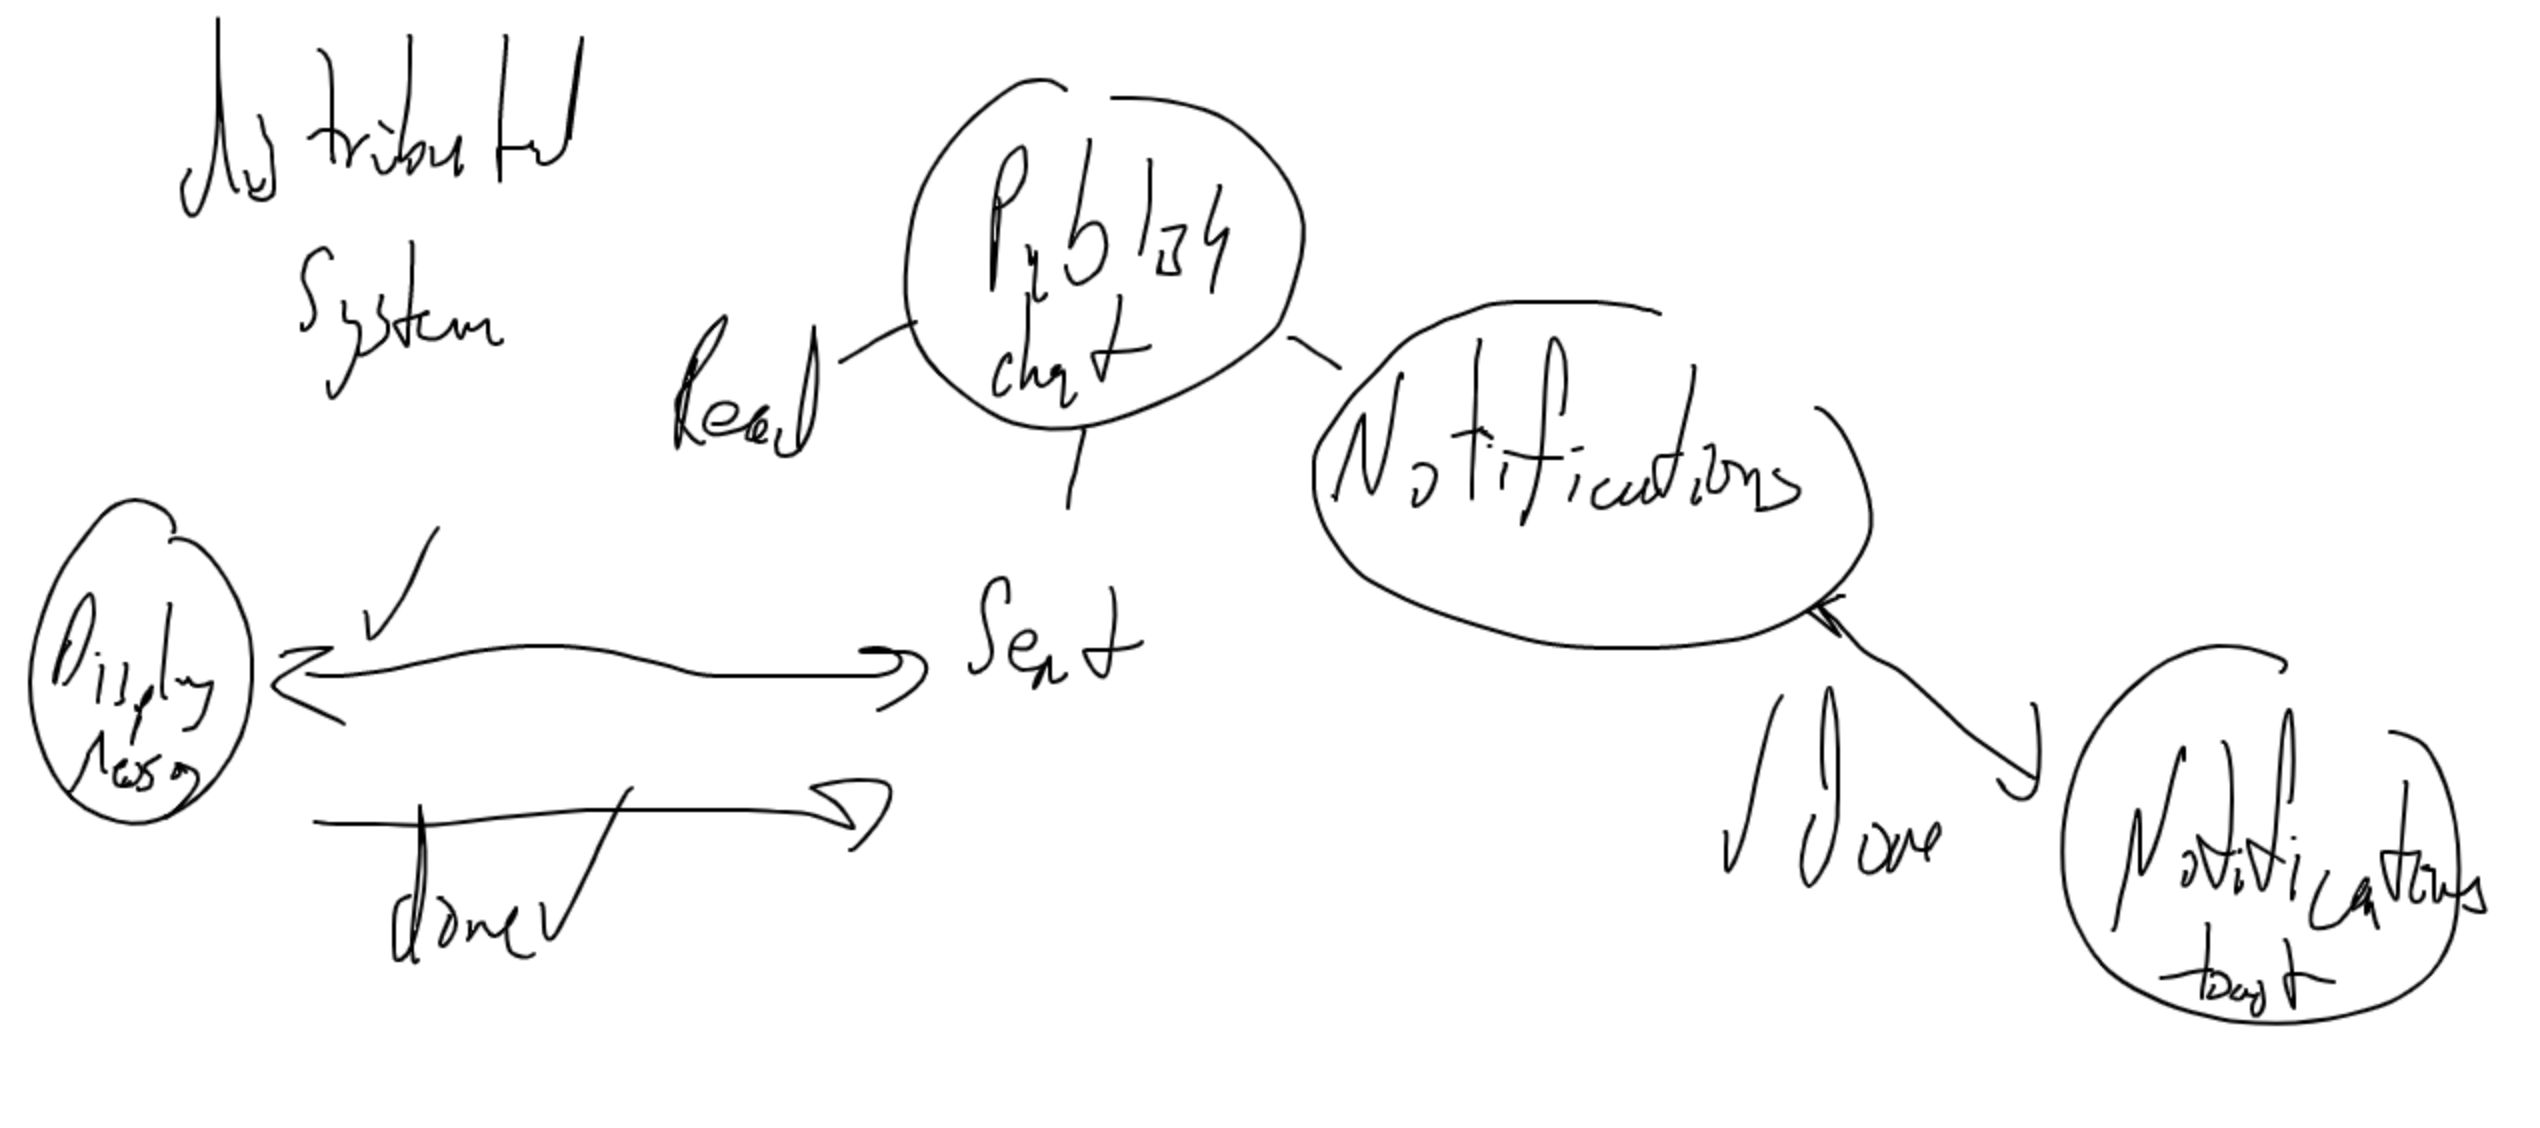 distributed
System
Publish
chat
Read
Notifications
Sent
Display
Messg
done
done
Notifications
toast